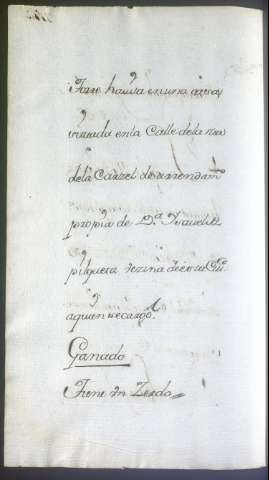 que havita en una casa
situada en la Calle de la
de la Carzel de arrendam.to
propia de D.a Isavel
vezina de esta Ciu.
a quien se cargó.
Ganado
Tiene un Zerdo